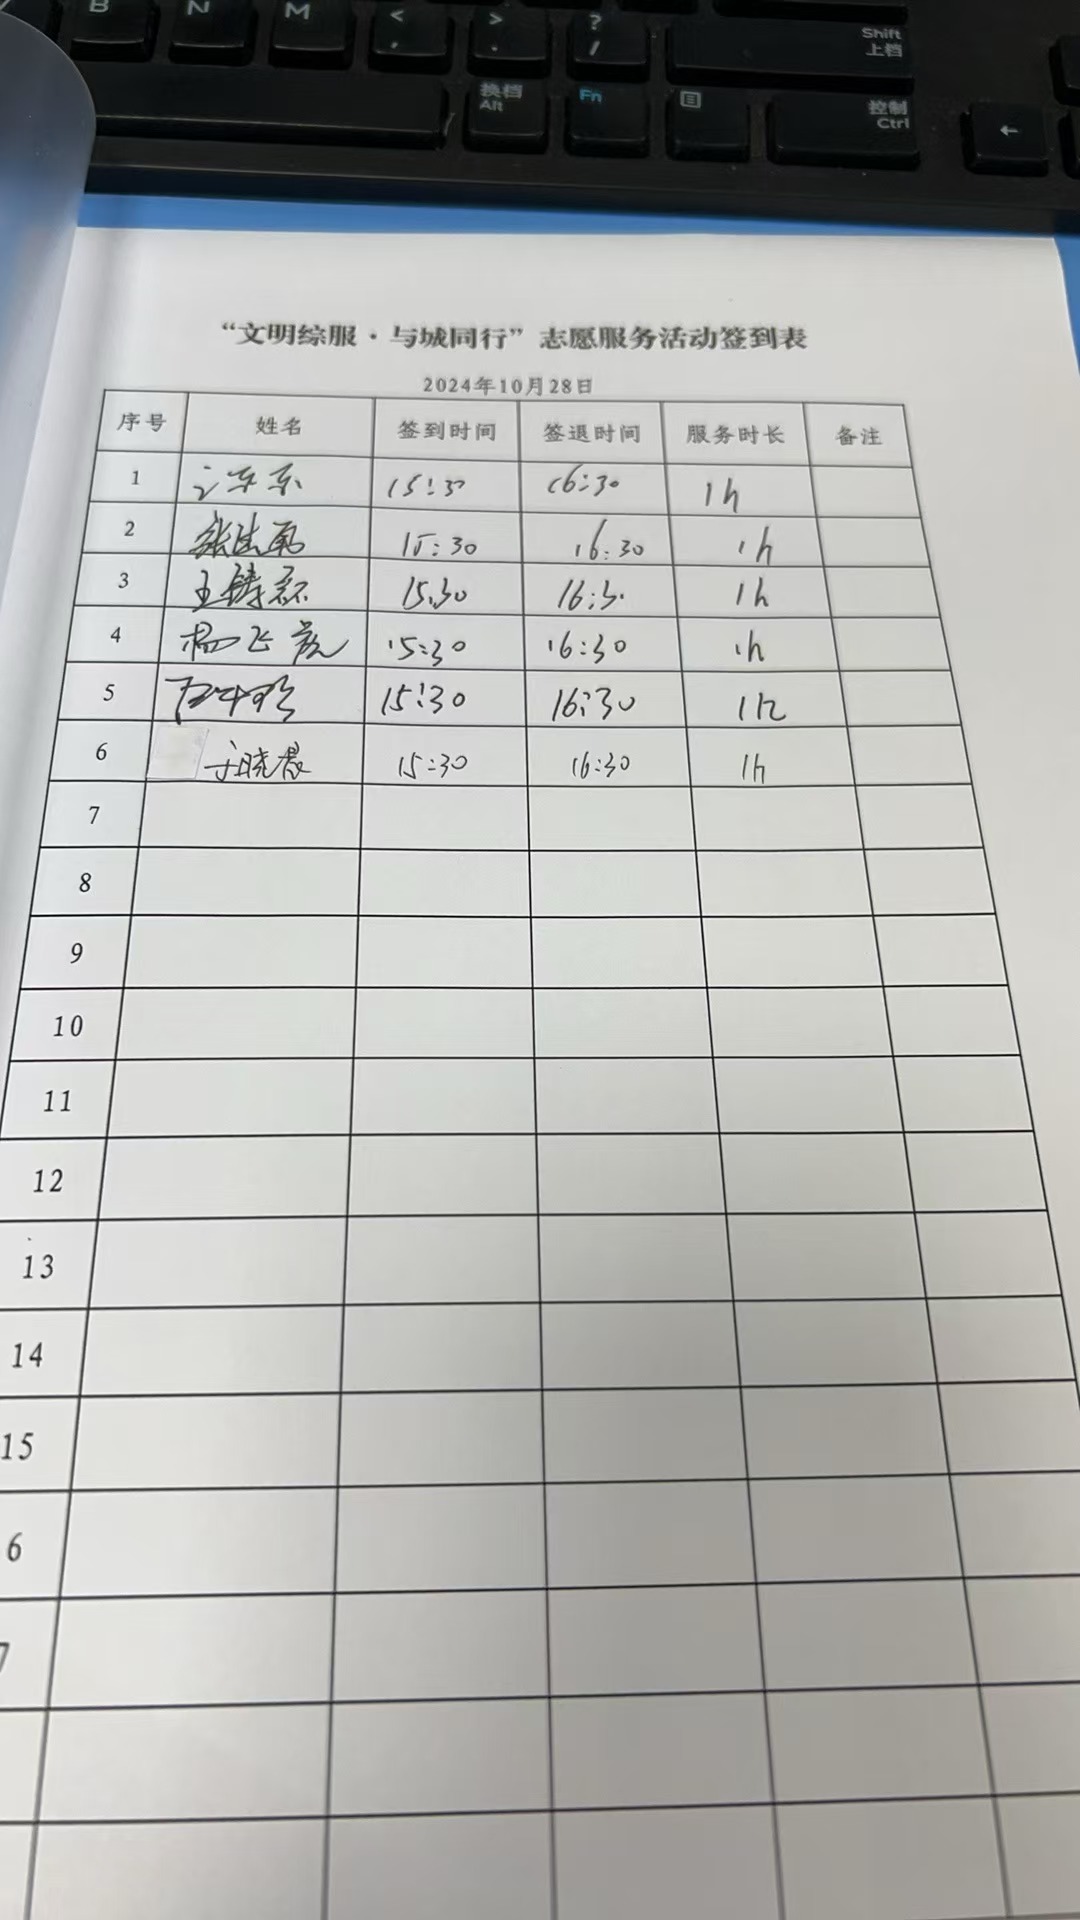 B N M < , > . ? / Shift 上档
换档 Alt Fn 控制 Ctrl ←
“文明综服·与城同行”志愿服务活动签到表
2024年10月28日
序号 姓名 签到时间 签退时间 服务时长 备注
1 15:30 16:30 1h
2 15:30 16:30 1h
3 王 15:30 16:30 1h
4 杨飞 15:30 16:30 1h
5 15:30 16:30 1h
6 于晓晨 15:30 16:30 1h
7
8
9
10
11
12
13
14
15
6
7